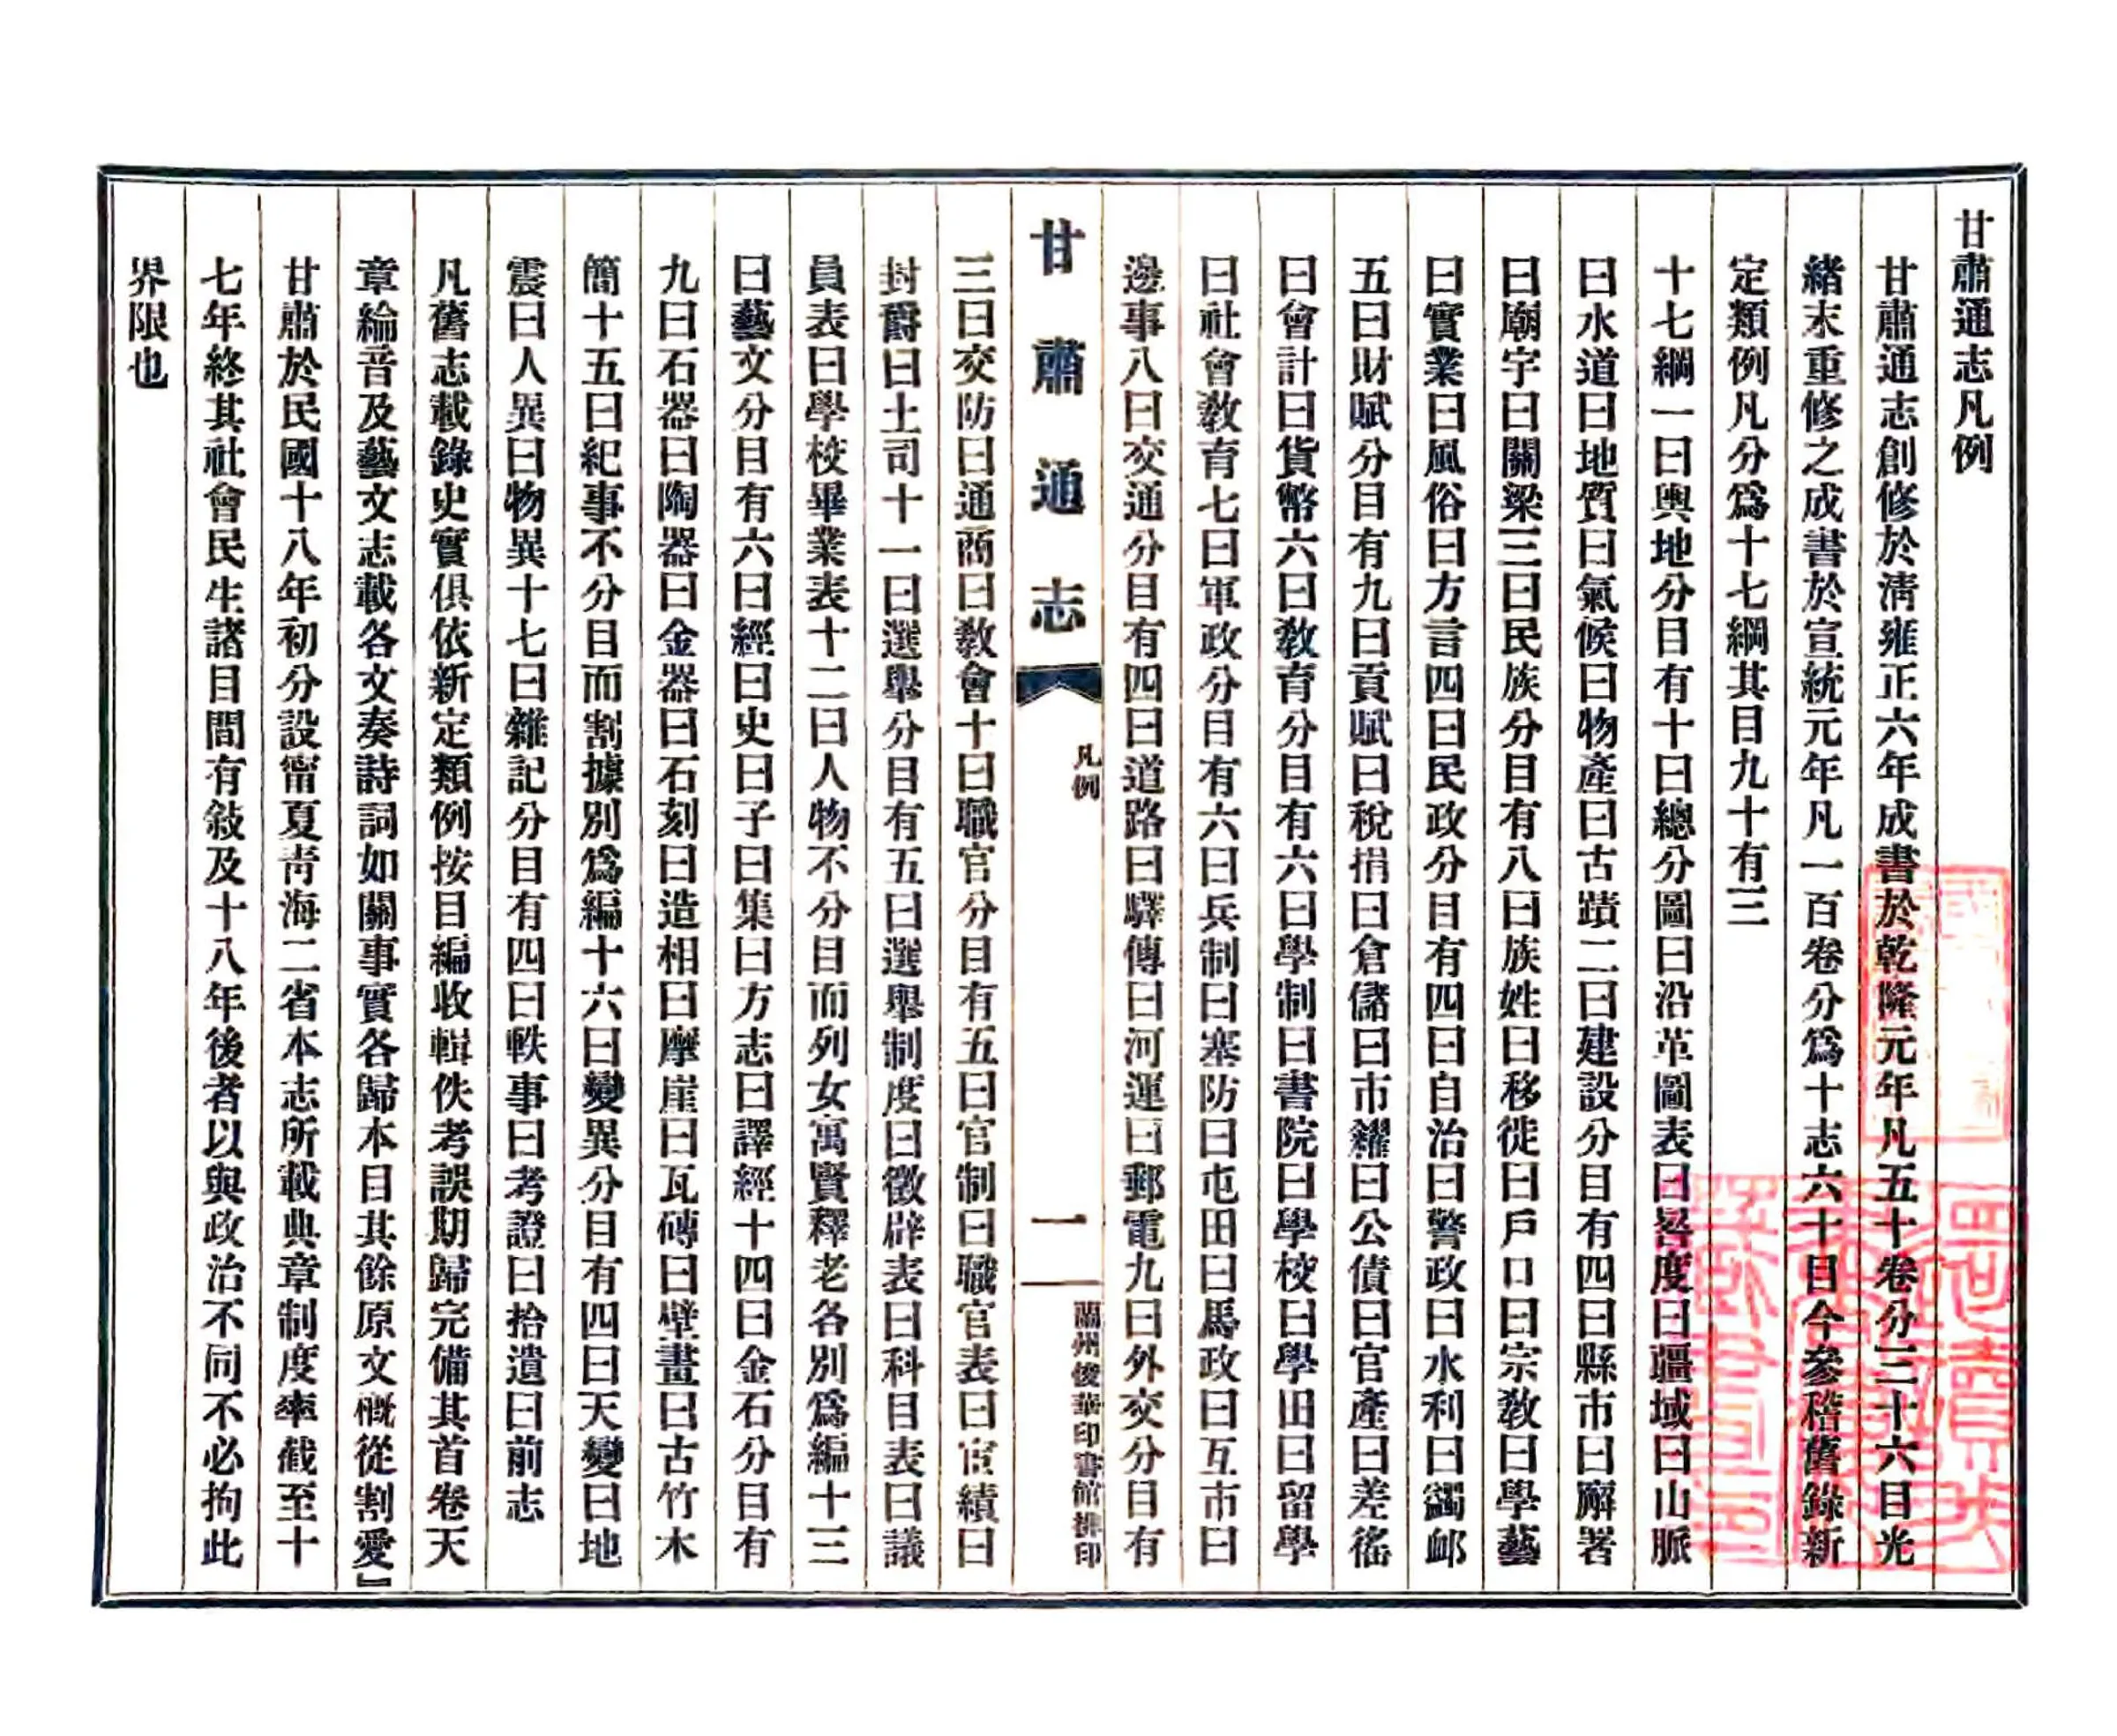 甘肅通志凡例
甘肅通志創修於淸雍正六年成書於乾隆元年凡五十卷分三十六目光
緒末重修之成書於宣統元年凡一百卷分爲十志六十目今參稽舊錄新
定類例凡分爲十七綱其目九十有三
十七綱一曰輿地分目有十曰總分圖曰沿革圖表曰晷度曰疆域曰山脈
曰水道曰地質曰氣候曰物產曰古蹟二曰建設分目有四曰縣市曰廨署
曰廟宇曰關梁三曰民族分目有八曰族姓曰移徙曰戶口曰宗敎曰學藝
曰實業曰風俗曰方言四曰民政分目有四曰自治曰警政曰水利曰蠲卹
五曰財賦分目有九曰貢賦曰稅捐曰倉儲曰市糴曰公債曰官產曰差徭
曰會計曰貨幣六曰敎育分目有六曰學制曰書院曰學校曰學田曰留學
曰社會敎育七曰軍政分目有六曰兵制曰塞防曰屯田曰馬政曰互市曰
邊事八曰交通分目有四曰道路曰驛傳曰河運曰郵電九曰外交分目有
甘肅通志
凡例
一
蘭州俊華印書館排印
三曰交防曰通商曰敎會十曰職官分目有五曰官制曰職官表曰宦績曰
封爵曰土司十一曰選舉分目有五曰選舉制度曰徵辟表曰科目表曰議
員表曰學校畢業表十二曰人物不分目而列女寓賢釋老各別爲編十三
曰藝文分目有六曰經曰史曰子曰集曰方志曰譯經十四曰金石分目有
九曰石器曰陶器曰金器曰石刻曰造相曰摩崖曰瓦磚曰壁畫曰古竹木
簡十五曰紀事不分目而割據別爲編十六曰變異分目有四曰天變曰地
震曰人異曰物異十七曰雜記分目有四曰軼事曰考證曰拾遺曰前志
凡舊志載錄史實俱依新定類例按目編收輯佚考誤期歸完備其首卷天
章綸音及藝文志載各文奏詩詞如關事實各歸本目其餘原文槪從割愛』
甘肅於民國十八年初分設甯夏靑海二省本志所載典章制度率截至十
七年終其社會民生諸目間有敍及十八年後者以與政治不同不必拘此
界限也